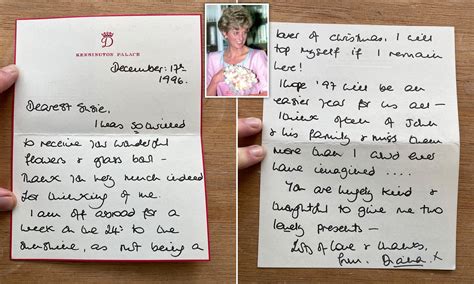 D
KENSINGTON PALACE
December. 17th
1996.
Dearest Susie,
I was so thrilled
to receive you wonderful
flowers & glass ball -
Thank you very much indeed
for thinking of me.
I am off abroad for a
week on the 24th to the
sunshine, as not being a
lover of Christmas, I will
top myself if I remain
here!
I hope '97 will be an
easier year for us all -
I think often of John
& his family & miss them
more than I could ever
have imagined ....
You are hugely kind &
thoughtful to give me two
lovely presents -
Lots of love & thanks,
from Diana. x